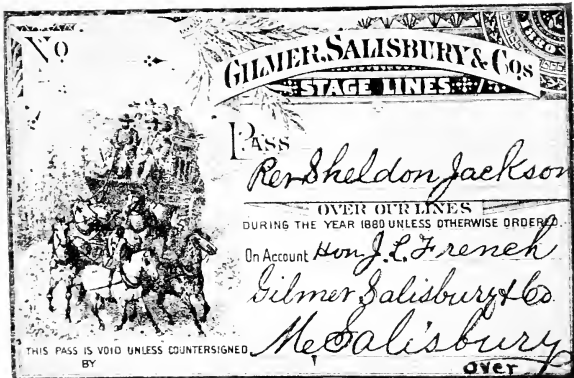 No
1880
GILMER, SALISBURY & COS
STAGE LINES
PASS
Rev Sheldon Jackson
OVER OUR LINES
DURING THE YEAR 1880 UNLESS OTHERWISE ORDERED.
On Account Hon J. L. French
Gilmer Salisbury & Co
M Salisbury
THIS PASS IS VOID UNLESS COUNTERSIGNED
BY
over